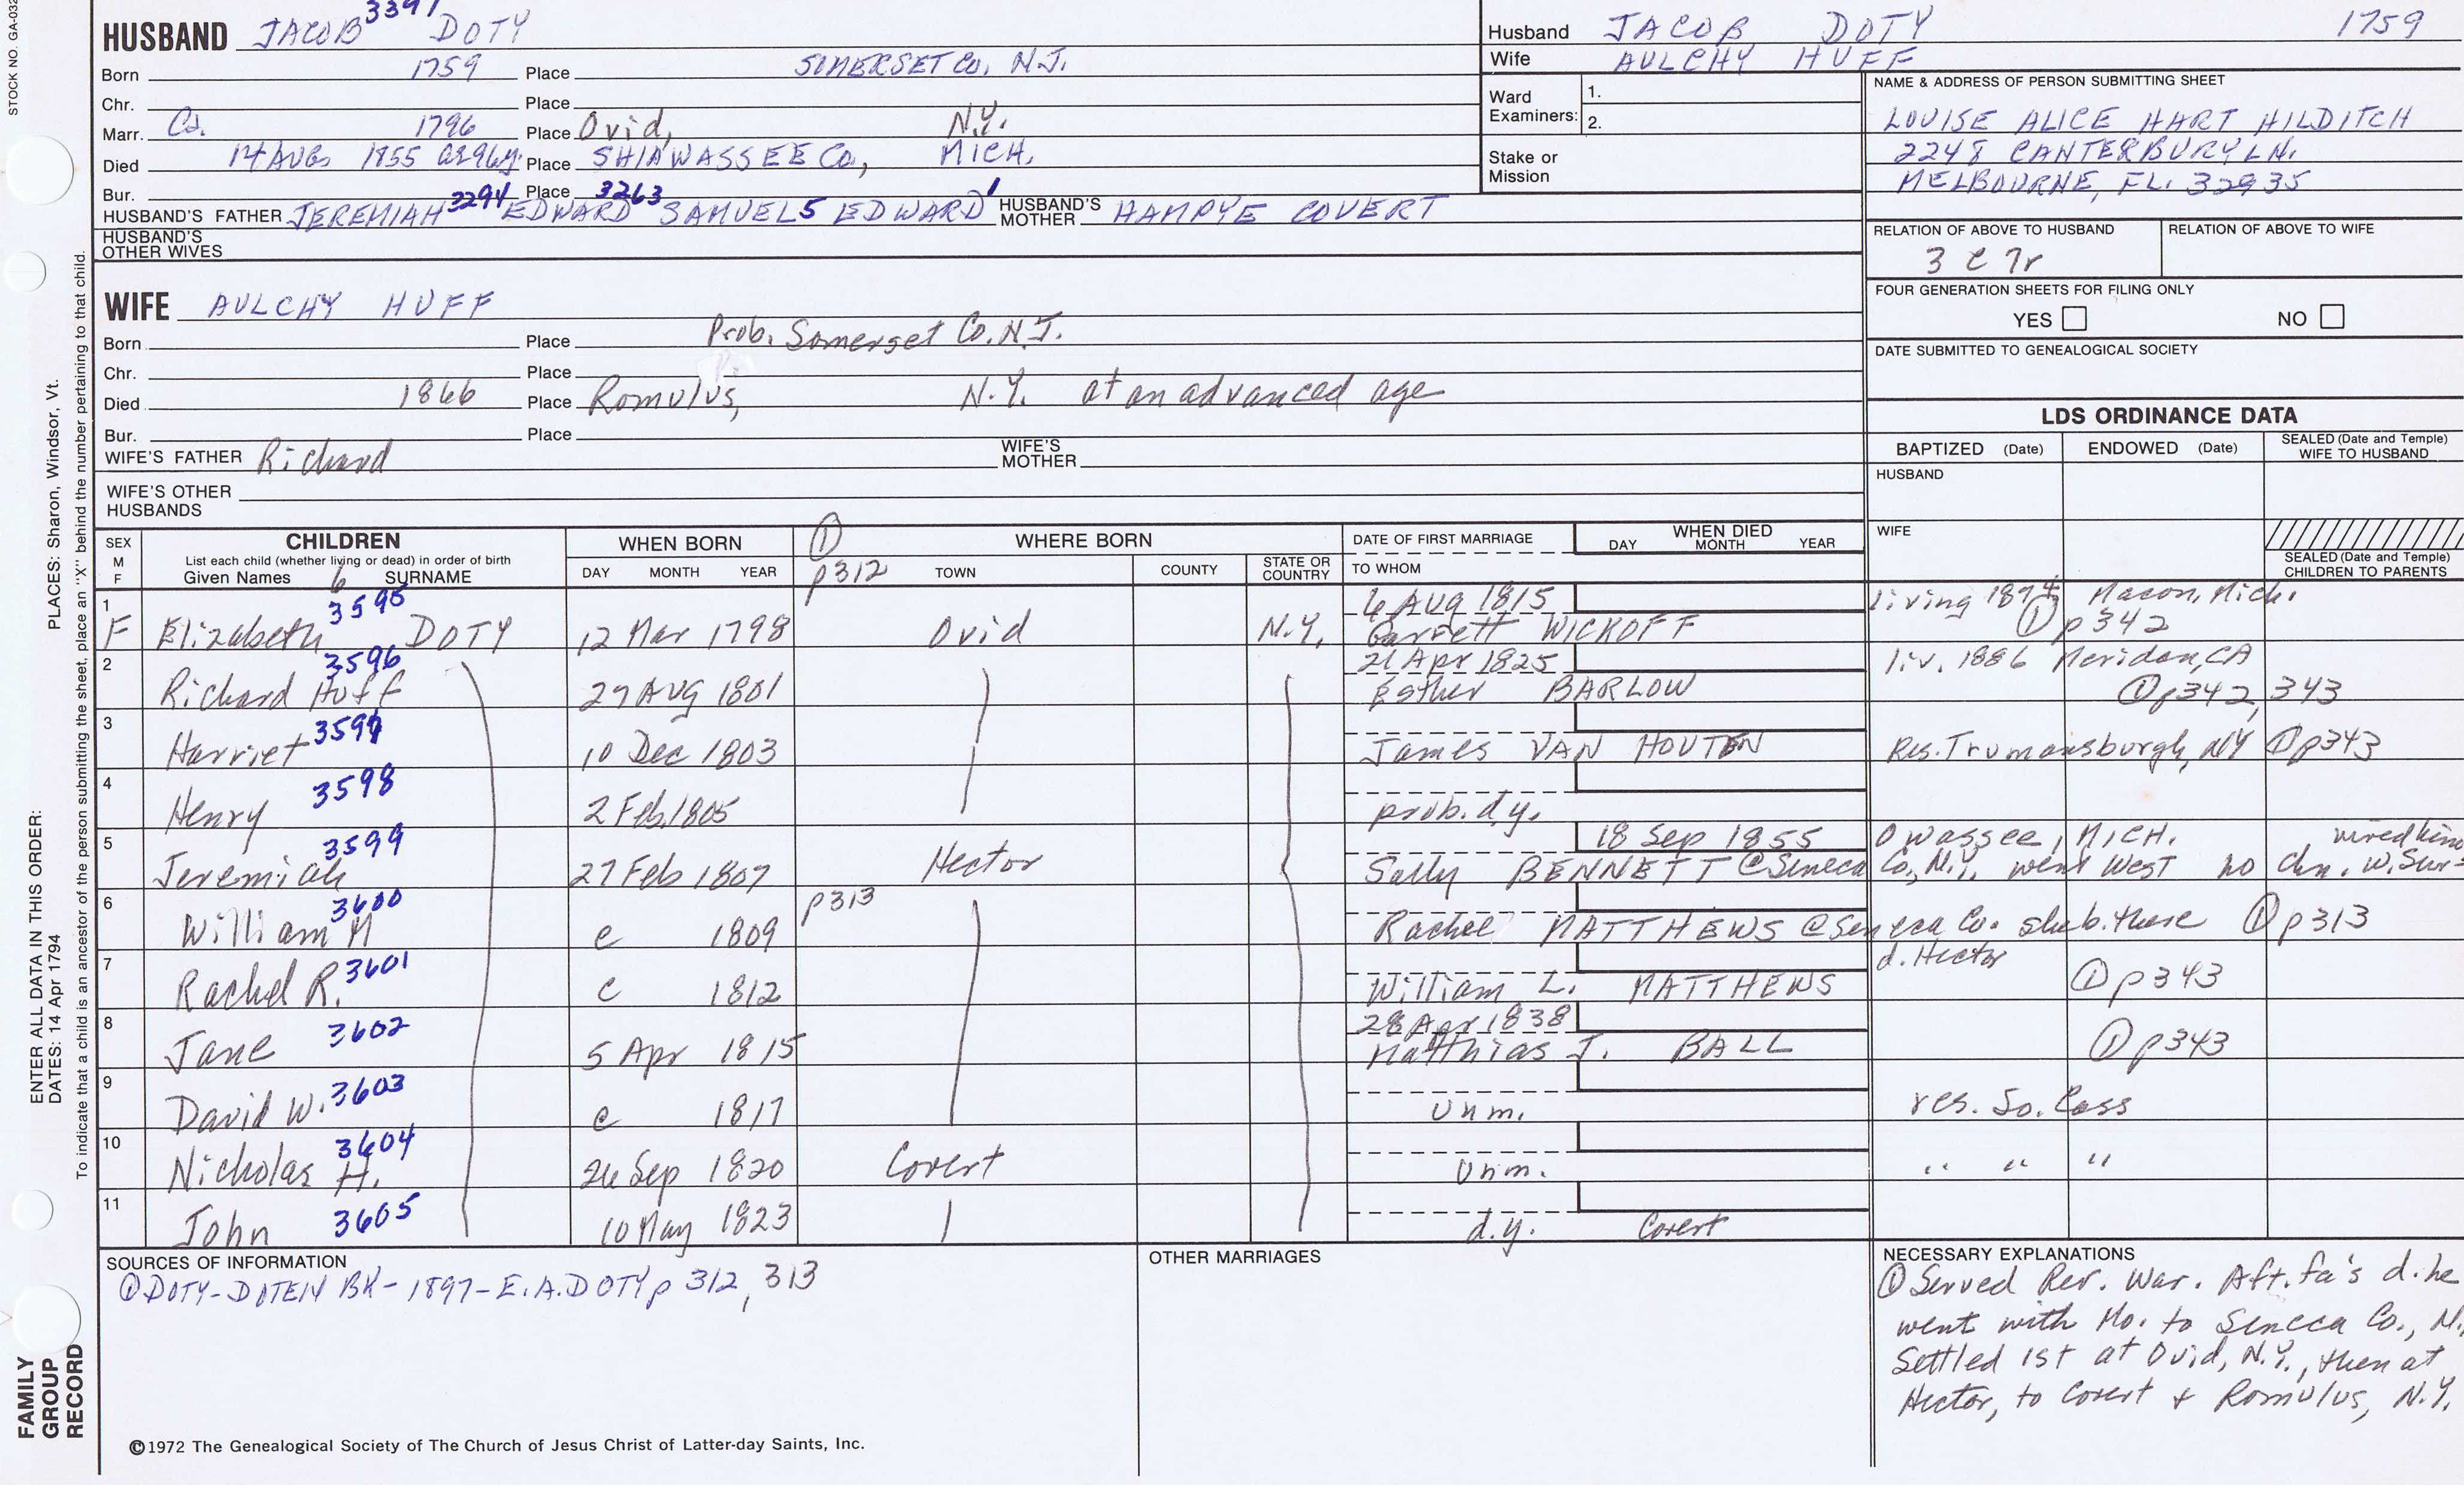 STOCK NO. GA-032
HUSBAND JACOB 3391 DOTY
Born 1759 Place SOMERSET CO. N.J.
Chr. Place
Marr. Ca. 1796 Place Ovid, N.Y.
Died 14 AUG 1855 ae 96y Place SHIAWASSEE Co, MICH.
Bur. Place
HUSBAND'S FATHER JEREMIAH 3294 EDWARD 3263 SAMUEL5 EDWARD1 HUSBAND'S MOTHER HAMPYE COVERT
HUSBAND'S OTHER WIVES
WIFE AULCHY HUFF
Born Place Prob. Somerset Co. N.J.
Chr. Place
Died 1866 Place Romulus, N.Y. at an advanced age
Bur. Place
WIFE'S FATHER Richard WIFE'S MOTHER
WIFE'S OTHER HUSBANDS
Husband JACOB DOTY 1759
Wife AULCHY HUFF
Ward Examiners: 1.
2.
Stake or Mission
NAME & ADDRESS OF PERSON SUBMITTING SHEET
LOUISE ALICE HART HILDITCH
2248 CANTERBURY LN.
MELBOURNE, FL. 32935
RELATION OF ABOVE TO HUSBAND RELATION OF ABOVE TO WIFE
3 C 7r
FOUR GENERATION SHEETS FOR FILING ONLY
YES NO
DATE SUBMITTED TO GENEALOGICAL SOCIETY
LDS ORDINANCE DATA
BAPTIZED (Date) ENDOWED (Date) SEALED (Date and Temple) WIFE TO HUSBAND
HUSBAND
WIFE
SEALED (Date and Temple) CHILDREN TO PARENTS
SEX M F
CHILDREN
List each child (whether living or dead) in order of birth
Given Names 6 SURNAME
WHEN BORN
DAY MONTH YEAR
① p312
WHERE BORN
TOWN COUNTY STATE OR COUNTRY
DATE OF FIRST MARRIAGE
TO WHOM
WHEN DIED
DAY MONTH YEAR
1 F Elizabeth 3595 DOTY 12 Mar 1798 Ovid N.Y. 6 AUG 1815 Garrett WICKOFF living 1894 Macon, Mich. ① p342
2 Richard Huff 3596 27 AUG 1801 21 Apr 1825 Esther BARLOW liv. 1886 Meridan, CA ① p342, 343
3 Harriet 3597 10 Dec 1803 James VAN HOUTEN Res. Trumansburgh, NY ① p343
4 Henry 3598 2 Feb. 1805 prob. d.y.
5 Jeremiah 3599 27 Feb 1807 Hector 18 Sep 1855 Owassee, MICH.
Sally BENNETT @ Seneca Co., N.Y. went West no chn. w. Sur-
6 William M 3600 c 1809 p313 Rachel MATTHEWS @ Seneca Co. she b. there ① p313
7 Rachel R. 3601 c 1812 William L. MATTHEWS d. Hector ① p343
8 Jane 3602 5 Apr 1815 28 Apr 1838 Matthias J. BALL ① p343
9 David W. 3603 c 1817 Unm. res. So. Cass
10 Nicholas H. 3604 26 Sep 1820 Covert Unm. " " "
11 John 3605 10 May 1823 d.y. Covert
SOURCES OF INFORMATION
① DOTY-DOTEN BK - 1897 - E.A. DOTY p 312, 313
OTHER MARRIAGES
NECESSARY EXPLANATIONS
① Served Rev. War. Aft. fa's d. he
went with Mo. to Seneca Co., N.
Settled 1st at Ovid, N.Y., then at
Hector, to Covert + Romulus, N.Y.
©1972 The Genealogical Society of The Church of Jesus Christ of Latter-day Saints, Inc.
FAMILY GROUP RECORD
ENTER ALL DATA IN THIS ORDER:
DATES: 14 Apr 1794
PLACES: Sharon, Windsor, Vt.
To indicate that a child is an ancestor of the person submitting the sheet, place an "X" behind the number pertaining to that child.